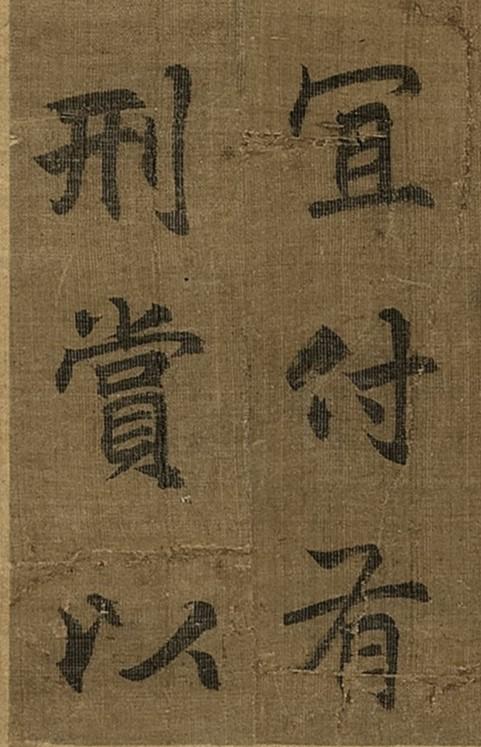 宜付有
刑賞以